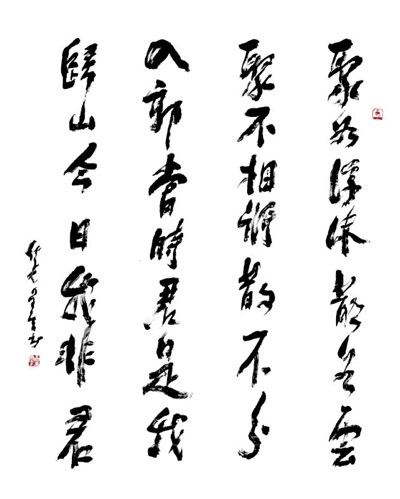 聚若浮沫散若雲
聚不相將散不分
入郭當時君是我
歸山今日我非君